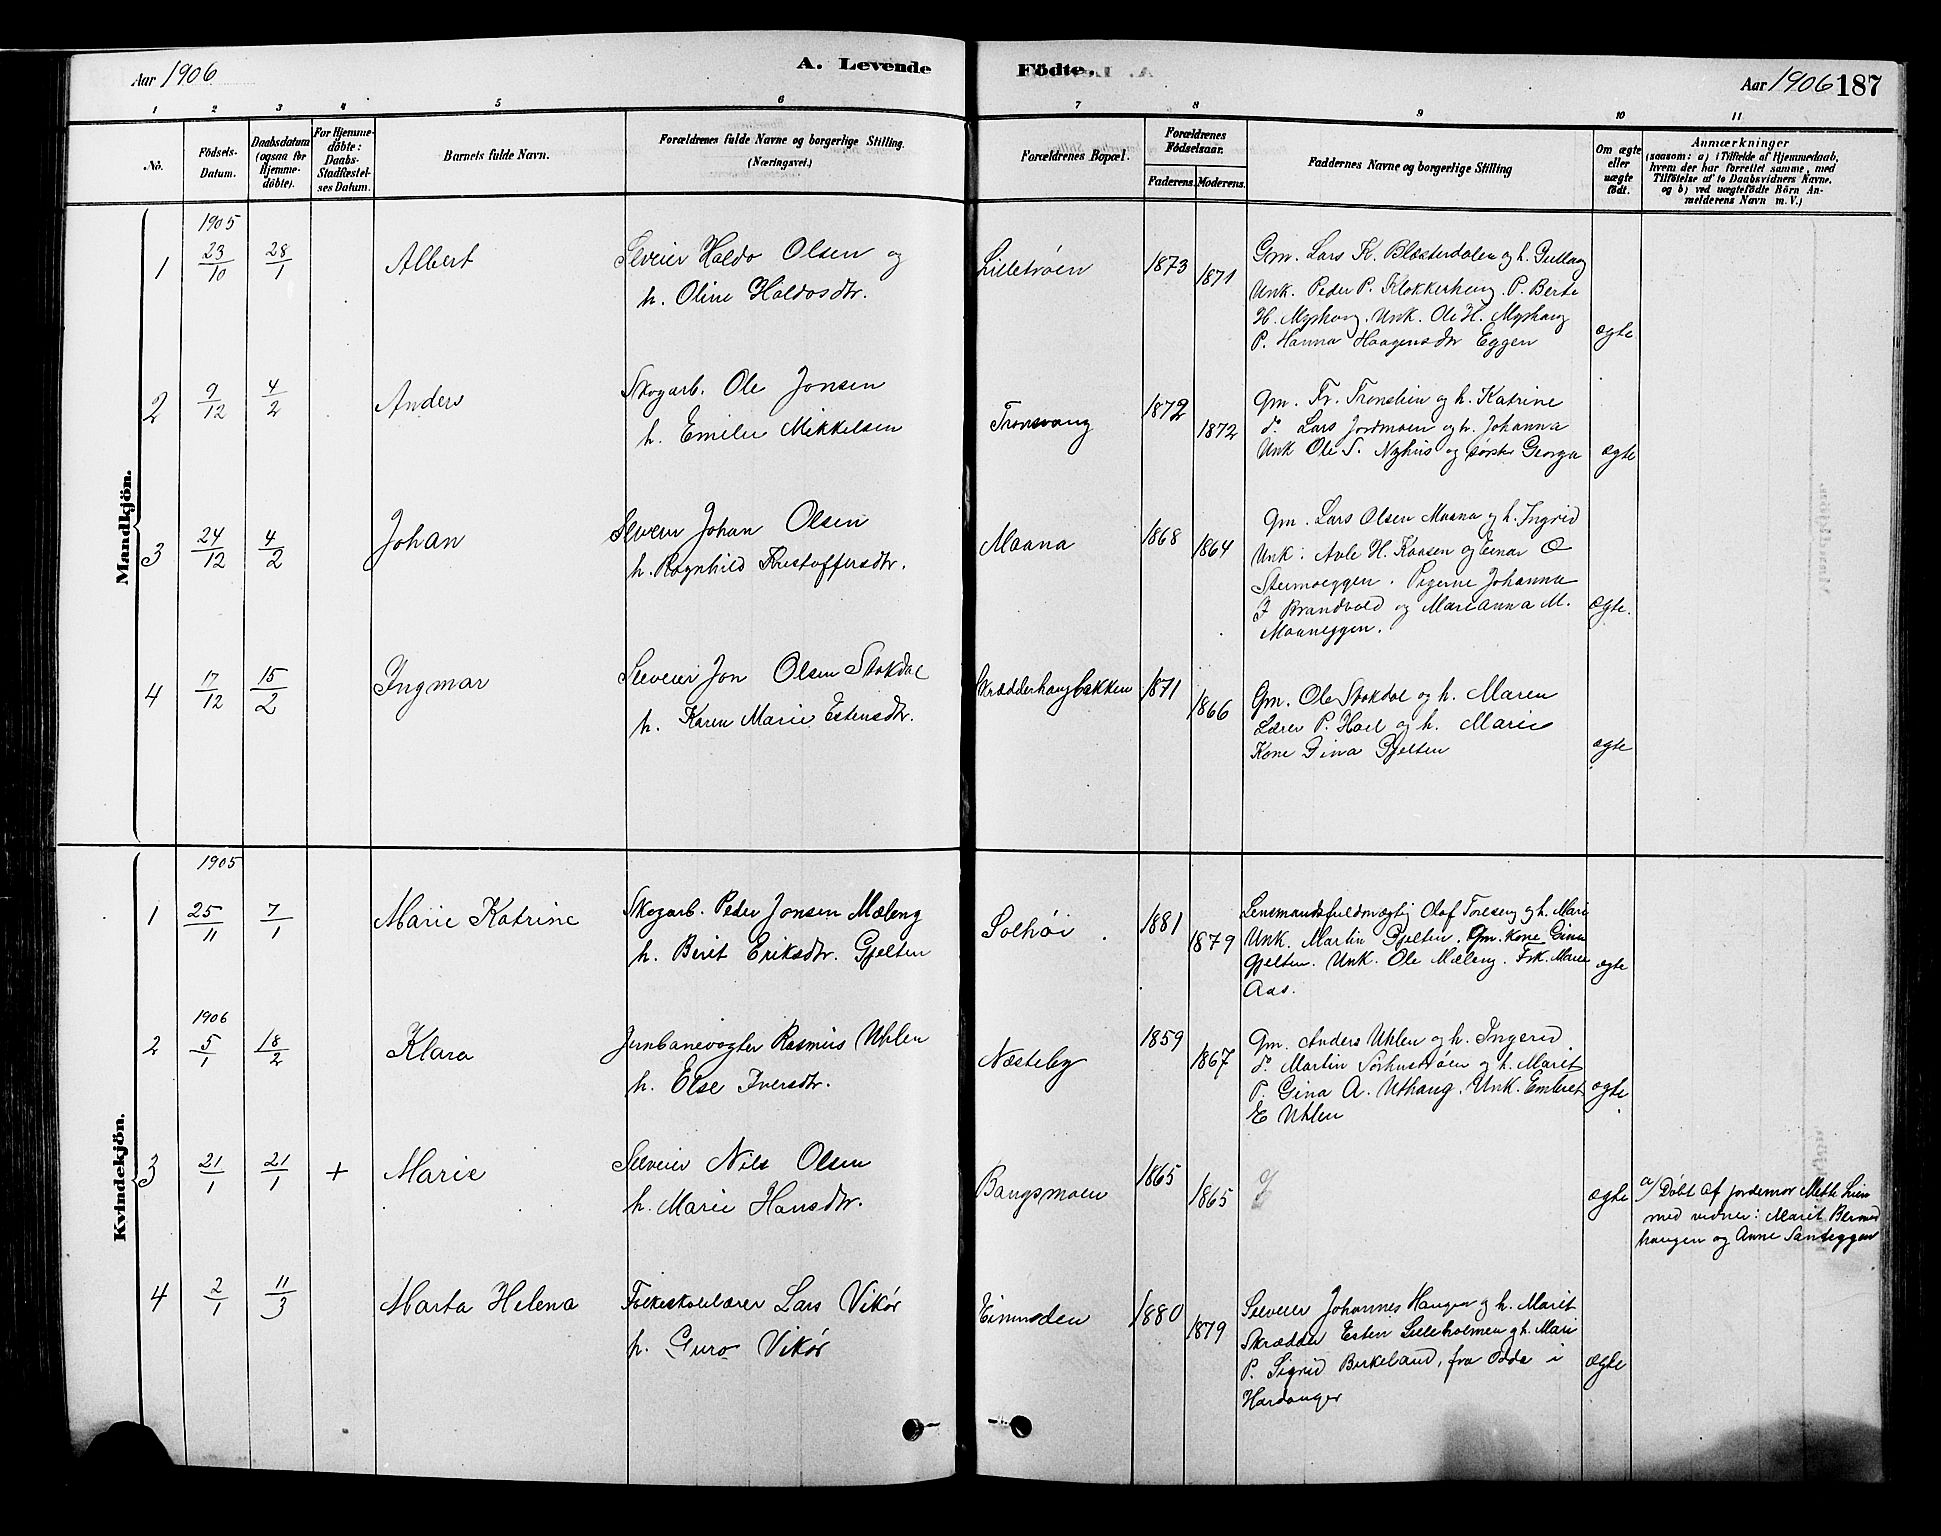 Aar 1906 A. Levende Födte. Aar 1906 187
1 2 3 4 5 6 7 8 9 10 11
No. Födsels-Datum. Daabsdatum (ogsaa for Hjemme-döbte). For Hjemme-döbte: Daabs-Stadfæstel-ses Datum. Barnets fulde Navn. Forældrenes fulde Navne og borgerlige Stilling. (Næringsvei.) Forældrenes Bopæl. Forældrenes Födselsaar. Faderens. Moderens. Faddernes Navne og borgerlige Stilling Om ægte eller uægte födt. Anmærkninger (saasom: a) i Tilfælde af Hjemmedaab, hvem der har forrettet samme, med Tilföielse af to Daabsvidners Navne, og b) ved uægtefödte Börn An-melderens Navn m. V.)
Mandkjön.
1905
1 23/10 28/1 Albert Selveier Haldo Olsen og
h. Oline Haldosdtr.
Lilletrøen 1873 1871
Gm. Lars K. Blæsterdalen og h. Gullaug
Unk. Peder P. Klokkerhaug. P. Berte
H. Myrhaug. Unk. Ole H. Myrhaug
P. Hanna Haagensdtr Eggen ægte
2 9/12 4/2 Anders Skogarb. Ole Jonsen
h. Emilie Mikkelsen
Tronsvang 1872 1872
Gm. Fr. Tronslien og h. Katrine
do. Lars Jordmoen og h. Johanna
Unk Ole T. Nyhus og søster Georga ægte
3 24/12 4/2 Johan Selveier Johan Olsen
h. Ragnhild Kristoffersdtr.
Maana 1868 1864
Gm. Lars Olsen Maana og h. Ingrid
Unk. Avle H. Kaasen og Einar O
Steimoeggen. Pigerne Johanna
J Brandvold og Marianna M.
Maaneggen. ægte.
4 17/12 15/2 Ingmar Selveier Jon Olsen Stokdal
h. Karen Marie Estensdtr.
Skrædderhaugbakken 1871 1866
Gm. Ole Stokdal og h. Maren
Lærer P. Hoel og h. Marie
Kone Gina Gjelten ægte
Kvindekjön.
1905
1 25/11 7/1 Marie Katrine Skogarb. Peder Jonsen Mæleng
h. Berit Eriksdtr. Gjelten
Solhøi. 1881 1879
Lensmandsfuldmægtig Olaf Toresen og h. Mari
Unk. Martin Gjelten. Gm. kone Gina
Gjelten. Unk. Ole Mæleng. Frk. Marie
Aas. ægte
1906
2 5/1 18/2 Klara Jernbanevogter Rasmus Uhlen
h. Else Iversdtr.
Næsteby 1859 1867
Gm. Anders Uhlen og h. Ingerid
do. Martin Sørhustrøen og h. Marit
P. Gina A. Uthaug. Unk. Embret
E Uhlen ægte
3 21/1 21/1 + Marie Selveier Nils Olsen
h. Marie Hansdtr.
Bangsmoen 1865 1865 ægte
a/ Døbt af jordemor Mette Lien
med vidner: Marit
haugen og Anne Santeggen
4 2/1 11/3 Marta Helena Folkeskolelærer Lars Vikør
h. Guro Vikør
Einunden 1880 1879
Selveier Johannes Haugen og h. Marit
Skrædder Esten Lilleholmen og h. Mari
P. Sigrid Birkeland, fra Odda i
Hardanger ægte